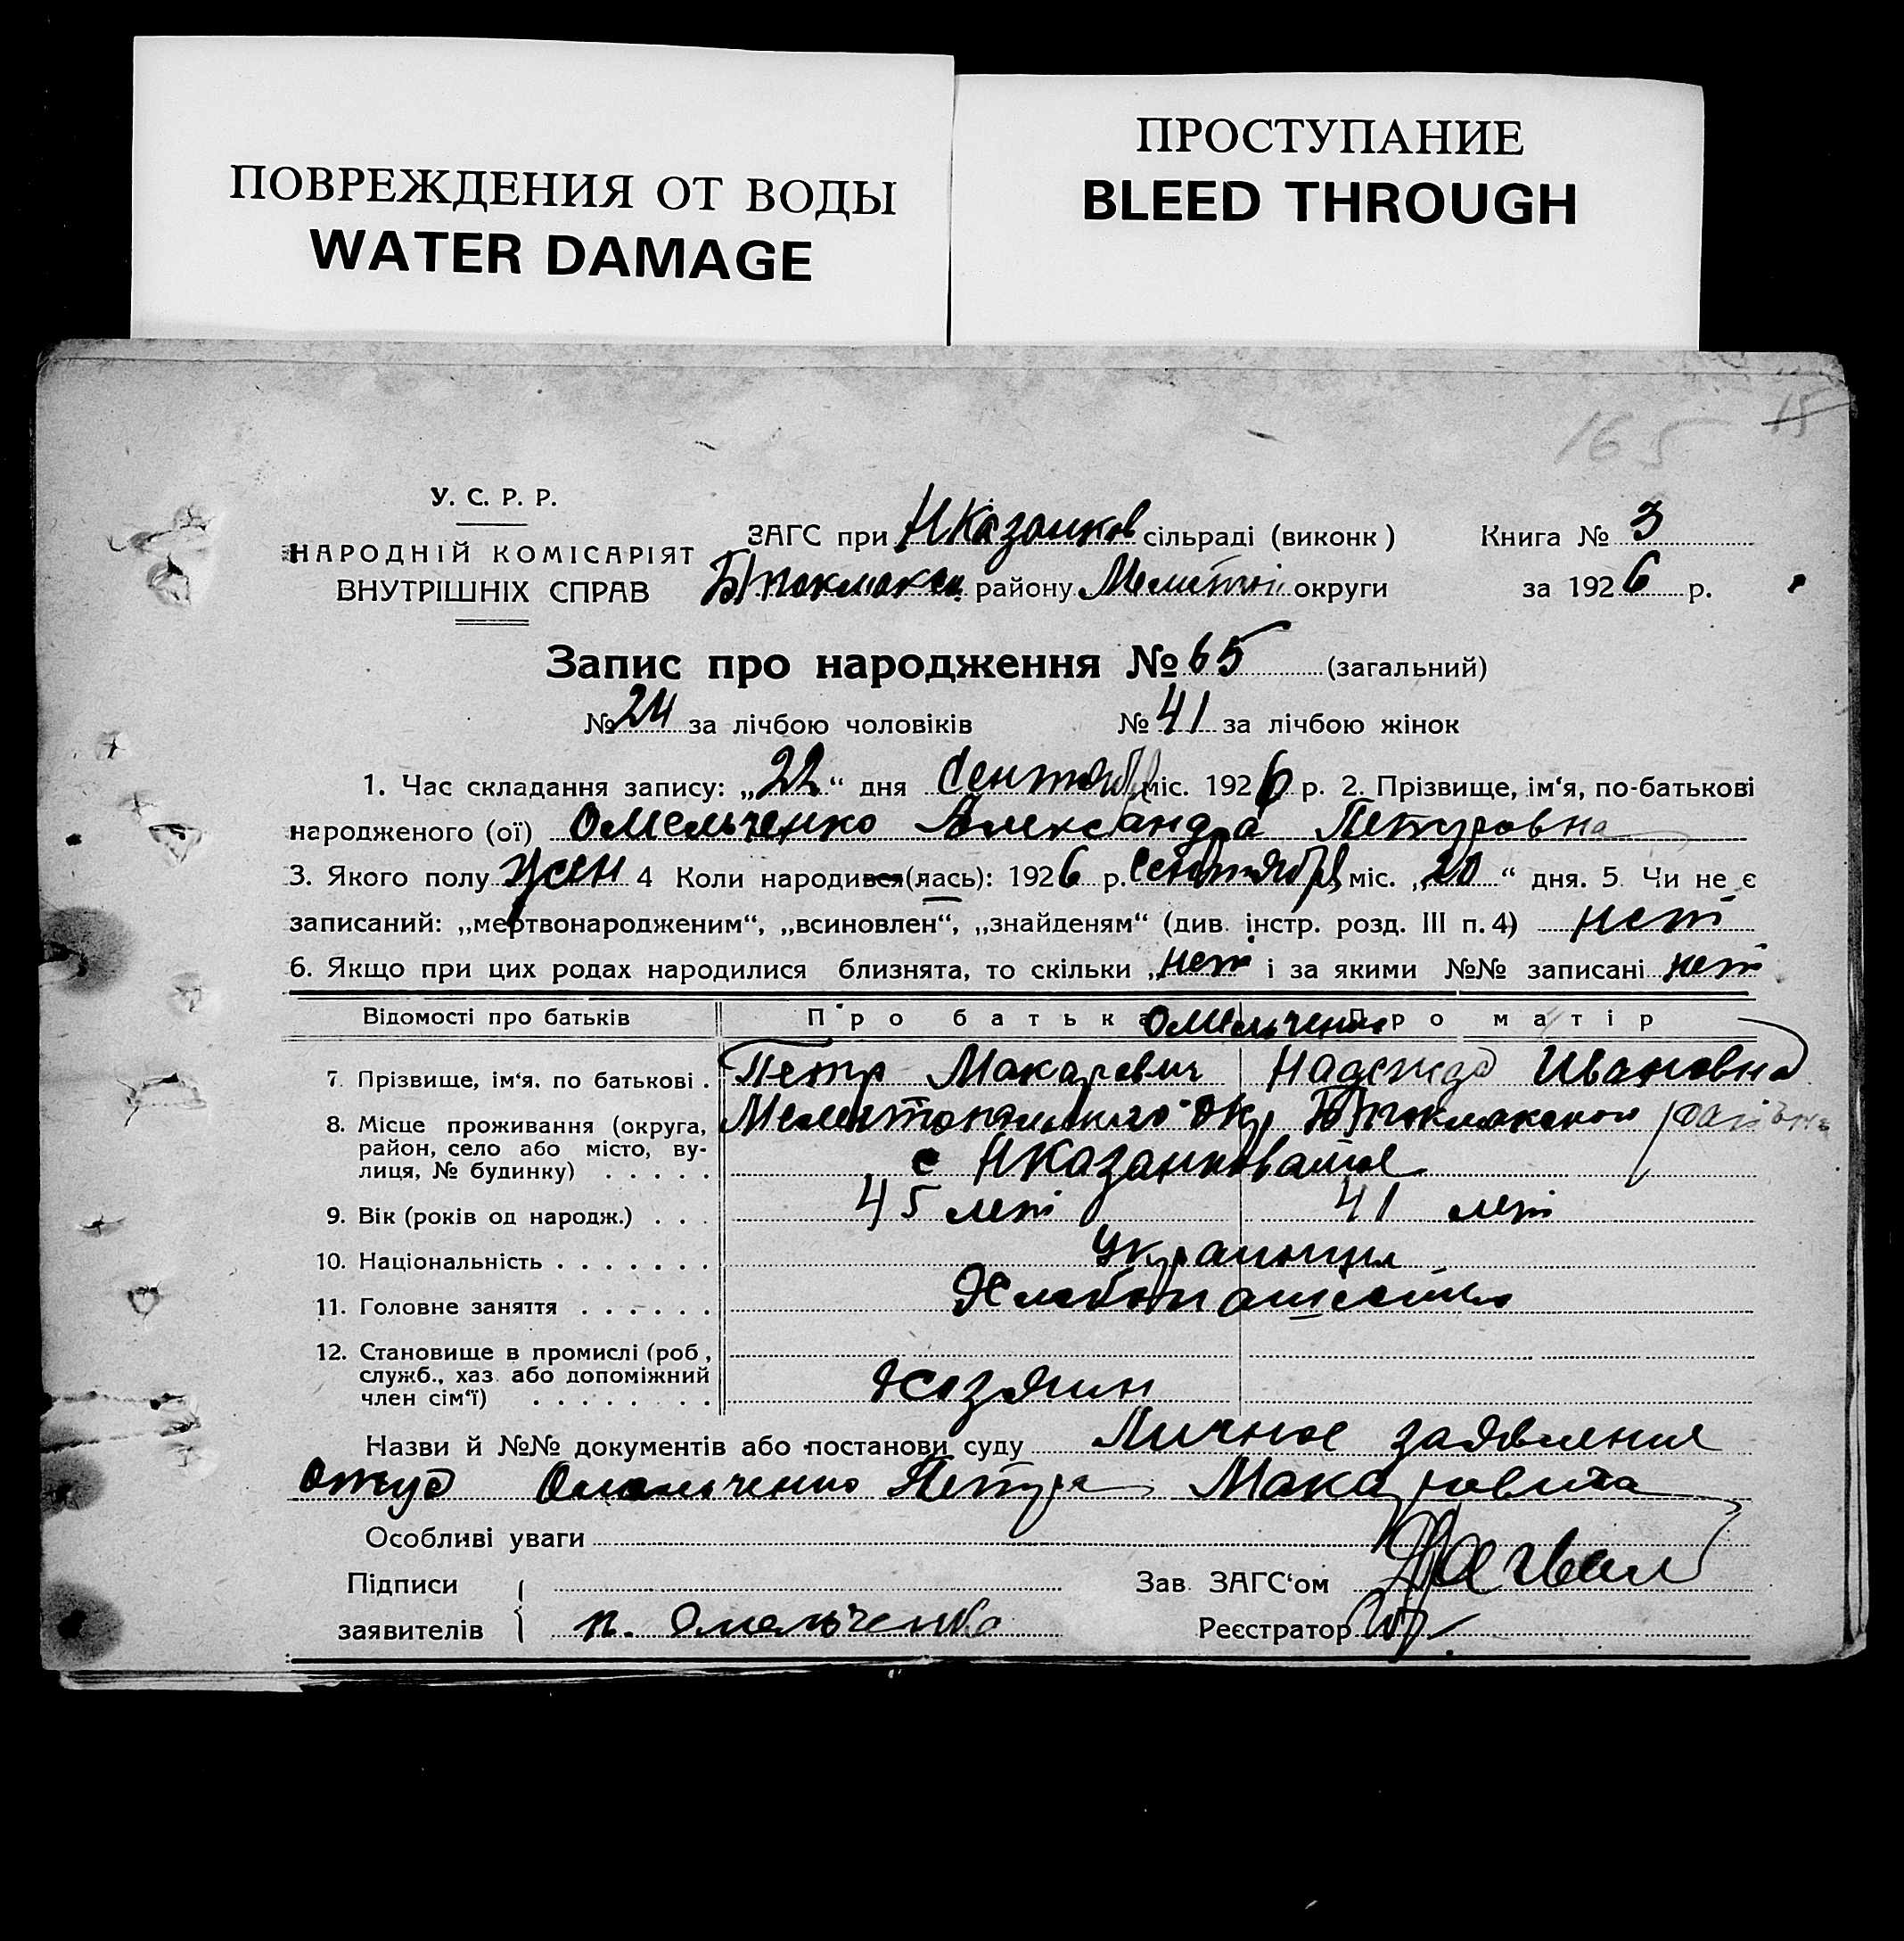 ПОВРЕЖДЕНИЯ ОТ ВОДЫ
WATER DAMAGE
ПРОСТУПАНИЕ
BLEED THROUGH
165 15
У. С. Р. Р.
НАРОДНІЙ КОМІСАРІЯТ
ВНУТРІШНІХ СПРАВ
ЗАГС при НКазанков сільраді (виконк)
Бтокмакск району Мелитоп округи
Книга № 3
за 1926 р.
Запис про народження № 65 (загальний)
№ 24 за лічбою чоловіків № 41 за лічбою жінок
1. Час складання запису: „22“ дня Сентября міс. 1926 р. 2. Прізвище, ім‘я, по-батькові
народженого (ої) Омельченко Александра Петровна
3. Якого полу жен 4 Коли народився(лась): 1926 р. Сентября міс. „20“ дня. 5. Чи не є
записаний: „мертвонародженим“, „всиновлен“, „знайденям“ (див. інстр. розд. III п. 4) нет
6. Якщо при цих родах народилися близнята, то скільки „нет і за якими №№ записані нет
Відомості про батьків Про батька Про матір
Омельченко
7. Прізвище, ім‘я. по батькові . Петр Макарович Надежда Ивановна
8. Місце проживання (округа, Мелитопольского окр Бтокмакского района
район, село або місто, ву-
лиця, № будинку) . . . . . с НКазанковатое
9. Вік (років од народж.) . . . 45 лет 41 лет
10. Національність . . . . . . . Украинцы
11. Головне заняття . . . . . . Хлебопашество
12. Становище в промислі (роб.,
служб., хаз. або допоміжний
член сім‘ї) . . . . . . . . Хозяин
Назви й №№ документів або постанови суду Личное заявление
отца Омельченко Петра Макаровича
Особливі уваги
Підписи Зав. ЗАГС‘ом
заявителів п. Омельченко Реєстратор